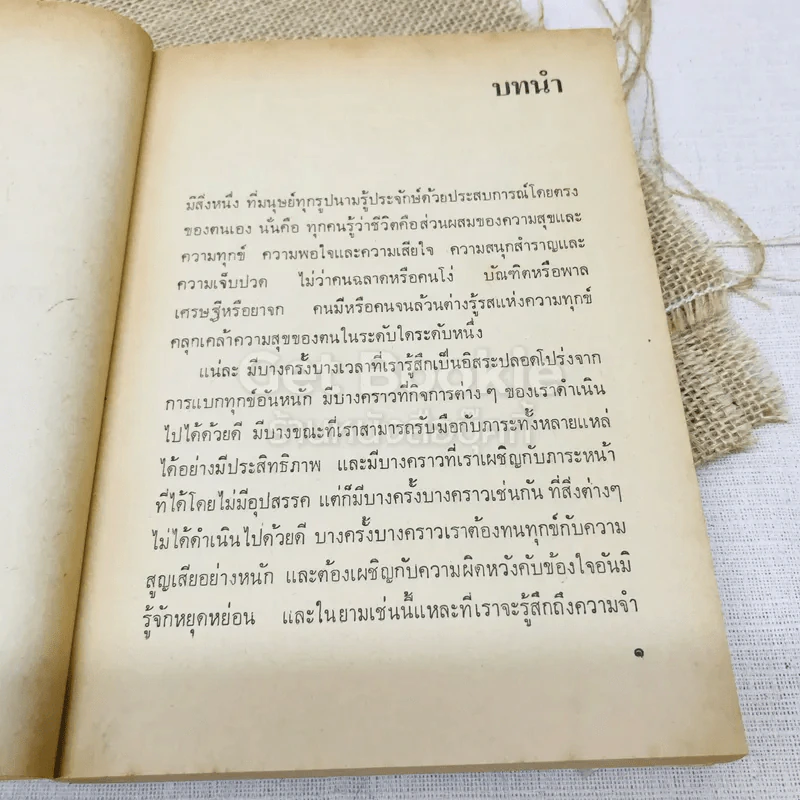 บทนำ
มีสิ่งหนึ่ง ที่มนุษย์ทุกรูปนามรู้ประจักษ์ด้วยประสบการณ์โดยตรง
ของตนเอง นั่นคือ ทุกคนรู้ว่าชีวิตคือส่วนผสมของความสุขและ
ความทุกข์ ความพอใจและความเสียใจ ความสนุกสำราญและ
ความเจ็บปวด ไม่ว่าคนฉลาดหรือคนโง่ บัณฑิตหรือพาล
เศรษฐีหรือยาจก คนมีหรือคนจนล้วนต่างรู้รสแห่งความทุกข์
คลุกเคล้าความสุขของตนในระดับใดระดับหนึ่ง
แน่ละ มีบางครั้งบางเวลาที่เรารู้สึกเป็นอิสระปลอดโปร่งจาก
การแบกทุกข์อันหนัก มีบางคราวที่กิจการต่าง ๆ ของเราดำเนิน
ไปได้ด้วยดี มีบางขณะที่เราสามารถรับมือกับภาระทั้งหลายแหล่
ได้อย่างมีประสิทธิภาพ และมีบางคราวที่เราเผชิญกับภาระหน้า
ที่ได้โดยไม่มีอุปสรรค แต่ก็มีบางครั้งบางคราวเช่นกัน ที่สิ่งต่างๆ
ไม่ได้ดำเนินไปด้วยดี บางครั้งบางคราวเราต้องทนทุกข์กับความ
สูญเสียอย่างหนัก และต้องเผชิญกับความผิดหวังคับข้องใจอันมิ
รู้จักหยุดหย่อน และในยามเช่นนี้แหละที่เราจะรู้สึกถึงความจำ
๑
Get Bookie